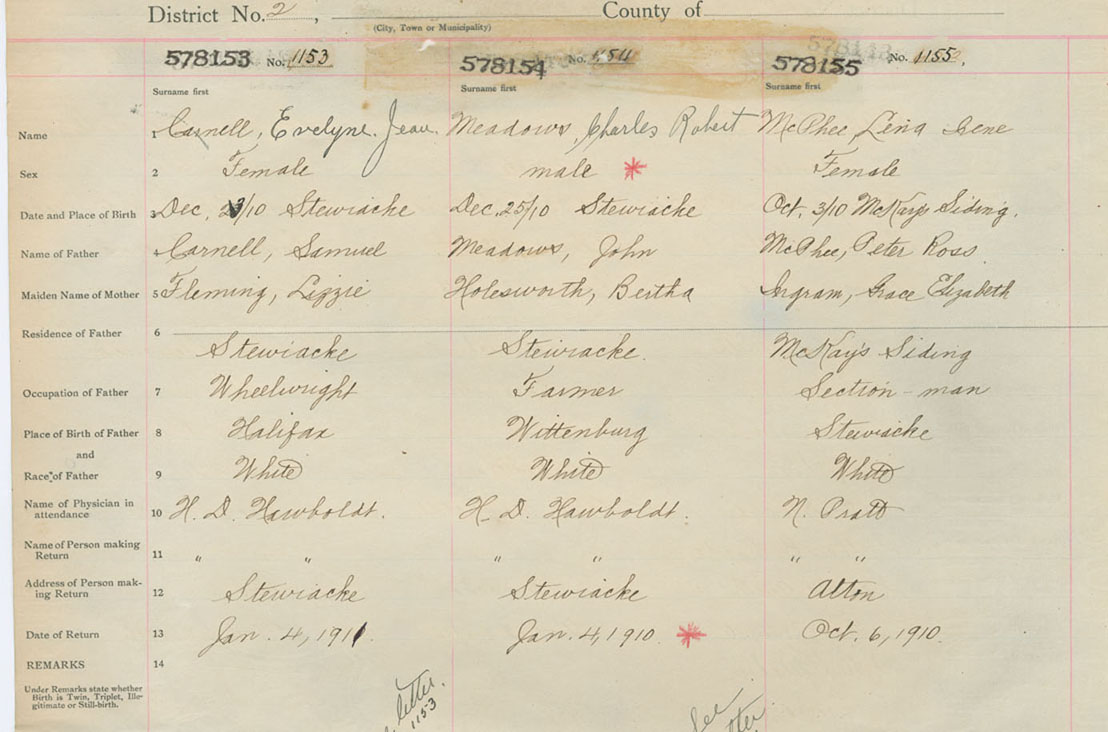 District No. 2, County of
(City, Town or Municipality)
578153 No. 1153 578154 No. 578155 No. 1155.
Surname first Surname first Surname first
Name 1 Carnell, Evelyne Jean Meadows, Charles Robert McPhee, Lena Irene
Sex 2 Female male * Female
Date and Place of Birth 3 Dec, 23/10 Stewiacke Dec. 25/10 Stewiacke Oct. 3/10 McKay's Siding.
Name of Father 4 Carnell, Samuel Meadows, John McPhee, Peter Ross
Maiden Name of Mother 5 Fleming, Lizzie Holesworth, Bertha Ingram, Grace Elizabeth
Residence of Father 6 Stewiacke Stewiacke. McKay's Siding
Occupation of Father 7 Wheelwright Farmer Section-man
Place of Birth of Father 8 Halifax Wittenburg Stewiacke
and
Race of Father 9 White White White
Name of Physician in
attendance 10 H. D. Hawboldt. H. D. Hawboldt. N. Pratt
Name of Person making
Return 11 " " " " " "
Address of Person mak-
ing Return 12 Stewiacke Stewiacke Alton
Date of Return 13 Jan. 4, 1911. Jan. 4, 1910. * Oct. 6, 1910.
REMARKS 14
Under Remarks state whether
Birth is Twin, Triplet, Ille-
gitimate or Still-birth.
letter. See
1153